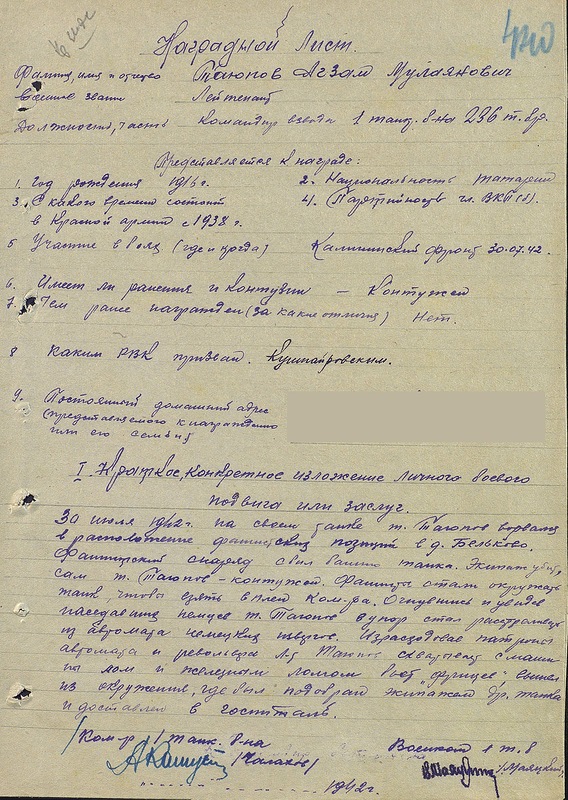 Наградной Лист.
420
Фамилия, имя и отчество Таюпов Агзам Мулаянович
Военное звание Лейтенант
Должность, часть Командир взвода 1 танк. б-на 236 т. бр.
Представляется к награде:
1. Год рождения 1916 г. 2. Национальность татарин
3. С какого времени состоит 4. Партийность чл. ВКП(б).
в Красной армии с 1938 г.
5 Участие в боях (где и когда) Калининский фронт 30.07.42.
6. Имеет ли ранения и контузии — Контужен
7. Чем ранее награжден (за какие отличия) Нет.
8 Каким РВК призван. Кушнаровским.
9. Постоянный домашний адрес
(представляемого к награждению
или его семьи)
I. Краткое, конкретное изложение личного боевого
подвига или заслуг.
30 июля 1942 г. на своем танке т. Таюпов ворвался
в расположение фашистских позиций в д. Бельково.
Фашистский снаряд сбил башню танка. Экипаж убит,
сам т. Таюпов - контужен. Фашисты стали окружать
танк, чтобы взять в плен Ком-ра. Очнувшись и увидев
наседавших немцев т. Таюпов в упор стал расстреливать
из автомата немецких Израсходовав патроны
автомата и револьвера Л-т Таюпов схватил с маши
ны лом и железным ломом бьет „фрицев“, вышел
из окружения, где был подобран экипажем др. танка
и доставлен в госпиталь.
Ком-р 1 танк. б-на Военком 1 т. б
1942 г.